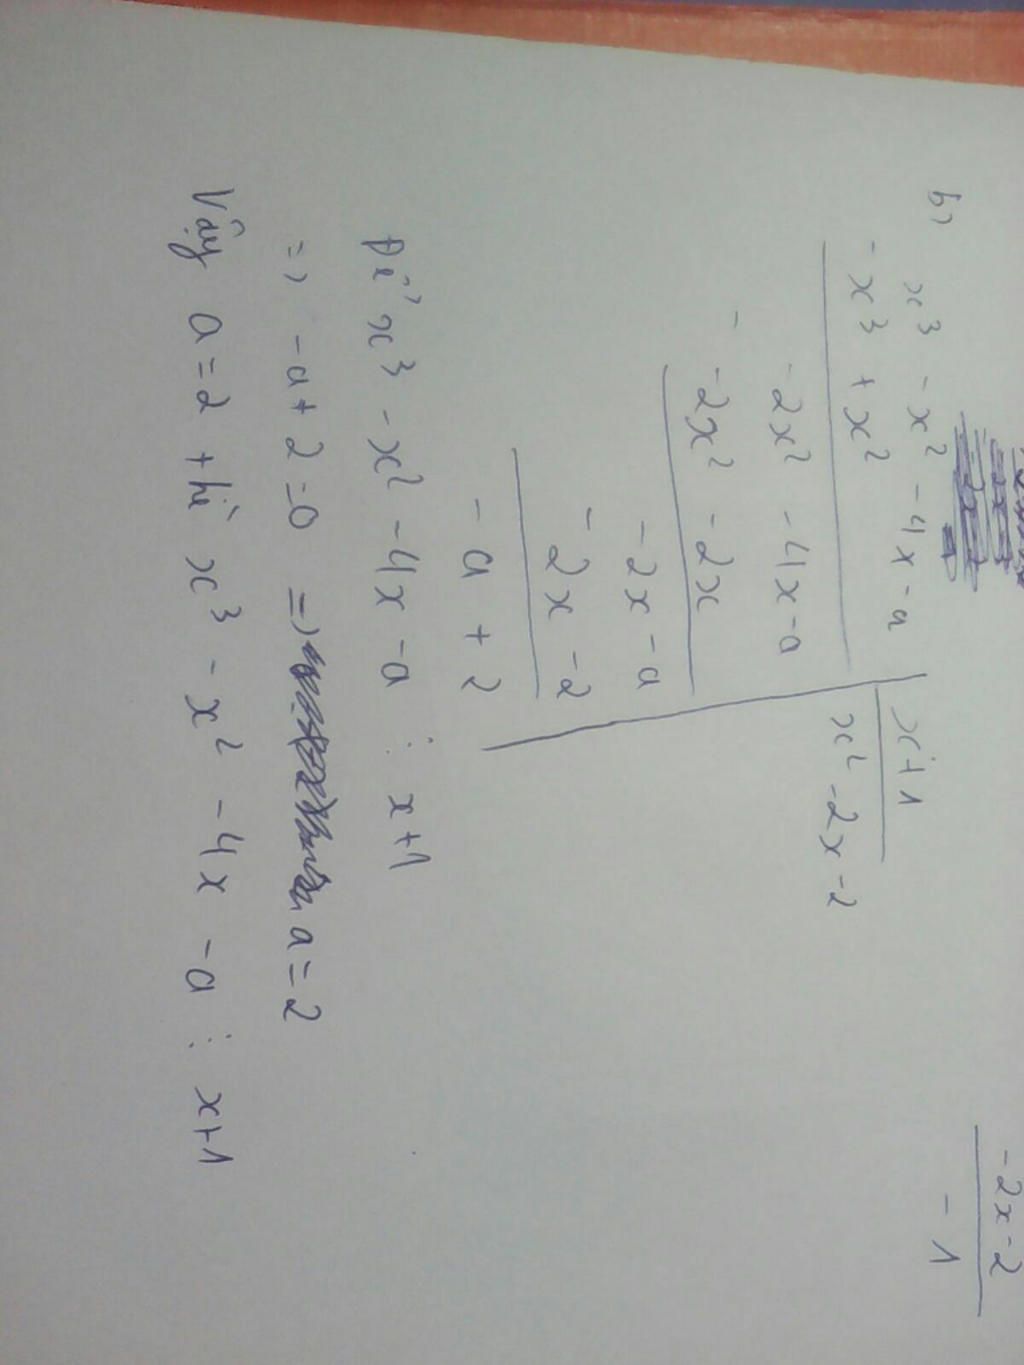 -2x-2
-1
b) x³ - x² - 4x - a
x+1
- x³ + x²
x² - 2x - 2
-2x² - 4x - a
- -2x² - 2x
-2x - a
- 2x - 2
- a + 2
Để x³ - x² - 4x - a ⋮ x+1
=> -a + 2 = 0 => a = 2
Vậy a = 2 thì x³ - x² - 4x - a ⋮ x+1